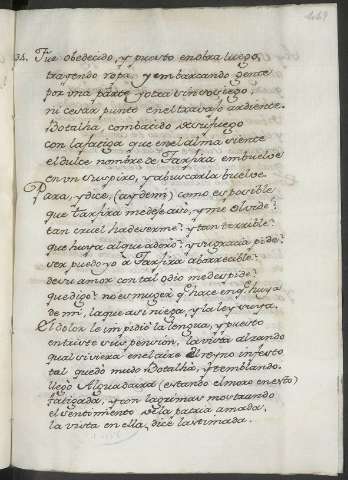 34. Fue obedecido, y puesto en obra luego,
trayendo ropa, y embarcando gente
por una parte y otra sin sosiego,
ni cesar punto en el travajo ardiente.
Botalha, combatido de su fuego
con la fatiga que en el alma siente
el dulce nombre de Tarfira embuelve
en un suspiro, y a buscarla buelve.
Para, y dice, (ay de mi) como es posible
que Tarfira me dejase, y me olvide?
tan cruel ha de serme? y tan terrible
que huya al que adoro? y su gracia pide?
ser puedo yo a Tarfira aborrecible?
de su amor con tal odio me despide?
que digo? no es muger q. hace en q. huya
de mi, la que asi niega, y la ley suya.
El dolor le impidió la lengua, y puesto
en tal suspension, la vista alzando
qual si viera en el aire el reyno infesto
tal quedó mudo Botalha, y temblando.
llegó Alguadaira (estando el moro en esto)
fatigada, y con lagrimas mostrando
el sentimiento de la patria amada,
la vista en ella, dice lastimada.